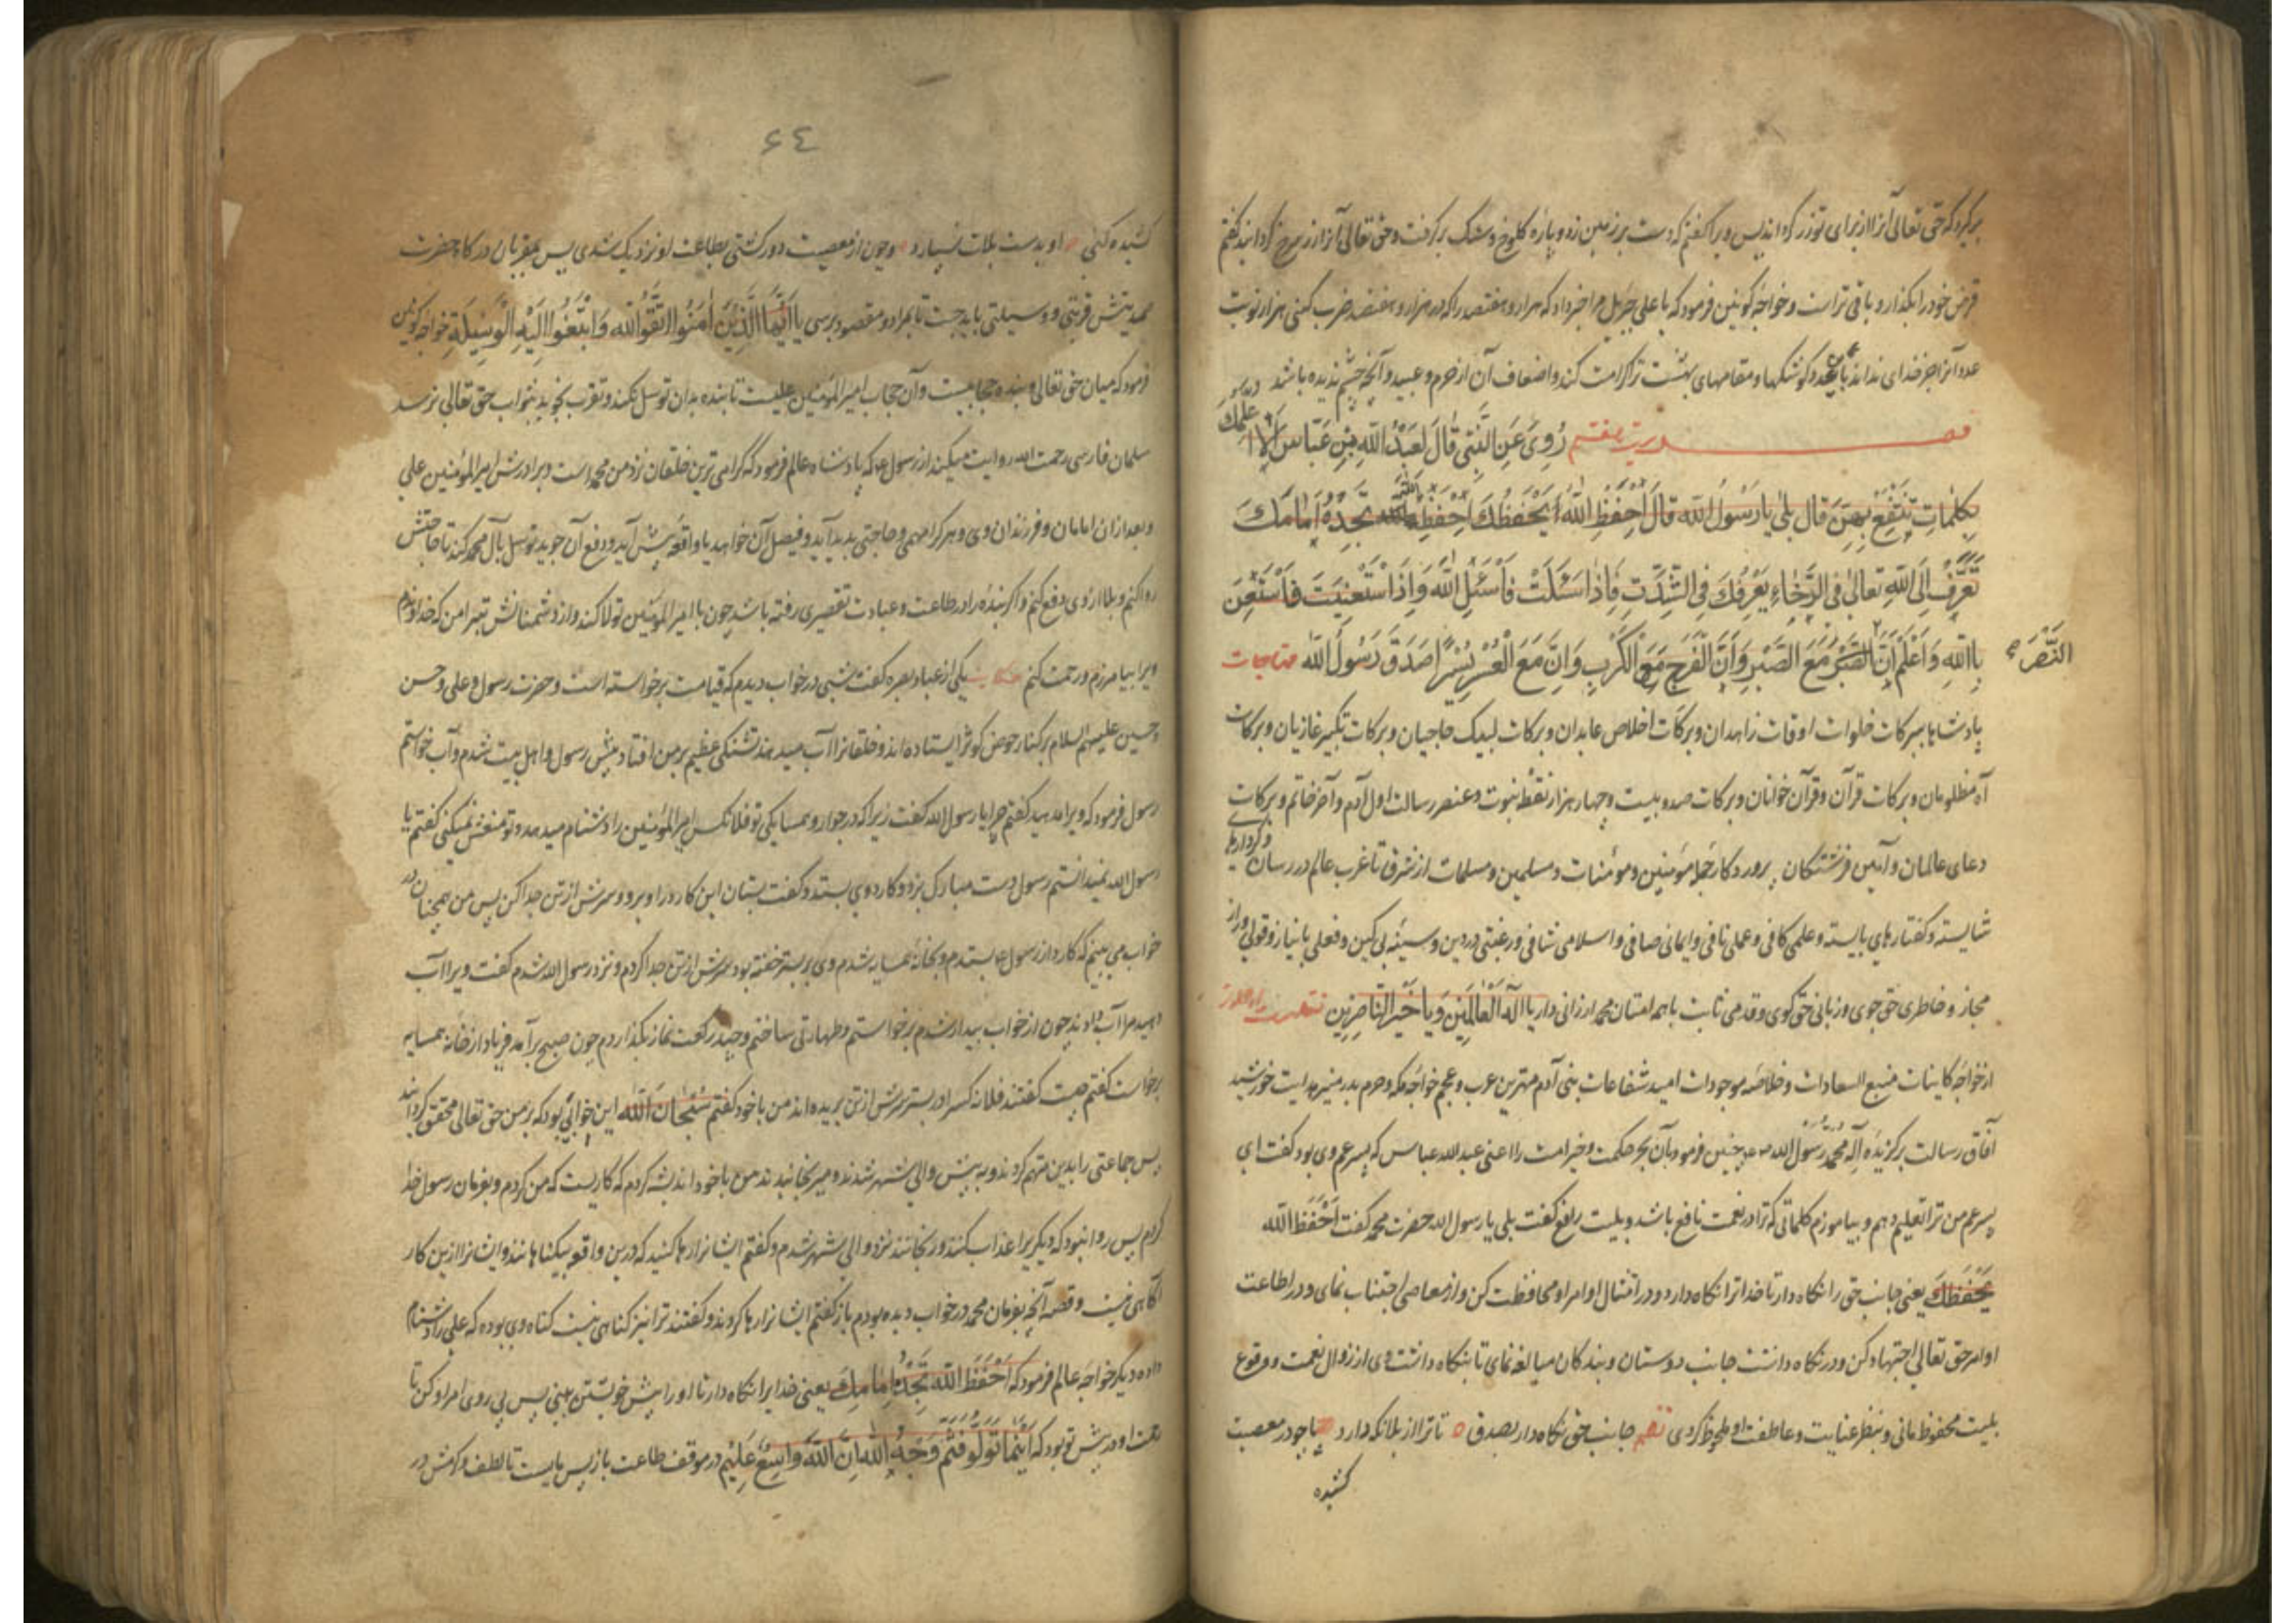 برگیرد که حق تعالی آنرا از برای تو زر گرداند پس ویرا گفتم که دست بر زمین زد و پارهٔ کلوخ و سنگ برگرفت و حق تعالی آنرا زر سرخ گردانید گفتم
قرض خود را بگذار و باقی تراست و خواجه کونین فرمود که یا علی جبرئیل مرا خبر داد که هزار و هفتصد را که در هزار و هفتصد ضرب کنی هزار نوبت
عدد آنرا جز خدای نداند و کوشکها و مقامهای بهشت ترا کرامت کند و اضعاف آن از خرم و عبید و آنچه چشم ندیده باشد
حدیث هفتم رُوِیَ عَنِ النَّبِیِّ قَالَ لِعَبْدِ اللّٰهِ بْنِ عَبَّاسٍ اَلَا اُعَلِّمُكَ
بِکَلِمَاتٍ تَنْتَفِعُ بِهِنَّ قَالَ بَلٰی یَا رَسُولَ اللّٰهِ قَالَ اِحْفَظِ اللّٰهَ یَحْفَظْكَ اِحْفَظِ اللّٰهَ تَجِدْهُ اَمَامَكَ
تَعَرَّفْ اِلَی اللّٰهِ تَعَالٰی فِی الرَّخَاءِ یَعْرِفُكَ فِی الشِّدَّتِ فَاِذَا سَئَلْتَ فَاسْئَلِ اللّٰهَ وَاِذَا اسْتَعَنْیَتَ فَاسْتَعِنْ
بِاللّٰهِ وَاعْلَمْ اَنَّ النَّصْرَ مَعَ الصَّبْرِ وَاَنَّ الْفَرَجَ مَعَ الْکَرْبِ وَاِنَّ مَعَ الْعُسْرِ یُسْرًا صَدَقَ رَسُولُ اللّٰهِ مناجات
النَّصْرَ صح
پادشاها ببرکات خلوات اوقات زاهدان و برکات اخلاص عابدان و برکات لبیک حاجیان و برکات تکبیر غازیان و برکات
آه مظلومان و برکات قرآن و قرآن خوانان و برکات صد و بیست و چهار هزار نقطهٔ نبوت و عنصر رسالت اول آدم و آخر خاتم و برکات
دعای عالمان و آمین فرشتگان پروردگار جمله مؤمنین و مؤمنات و مسلمین و مسلمات از شرق تا غرب عالم در رسان و کردارهای
شایسته و گفتارهای بایسته و علمی کافی و عملی نافی و ایمانی صافی و اسلامی شافی و رغبتی در دین و سینهٔ بی کین و فعلی با نیاز و قولی ورای
مجاز و خاطری حق جوی و زبانی حق گوی و قدمی ثابت با همه امتان محمد ارزانی دار یا اِلٰهَ الْعَالَمِینَ وَ یَا خَیْرَ النَّاصِرِینَ
از خواجهٔ کاینات منبع السعادات و خلاصه موجودات امید شفاعات بنی آدم مهترین عرب و عجم خواجهٔ مکه و حرم بدر منیر هدایت خورشید
آفاق رسالت برگزیدهٔ اله محمد رسول الله چنین فرمود بآن بحر حکمت و خیر امت را اعنی عبدالله عباس که پسر عم وی بود گفت ای
پسر عم من ترا تعلیم دهم و بیاموزم کلماتی که ترا در نعمت نافع باشد و بلیت رافع گفت بلی یا رسول الله حضرت محمد گفت اِحْفَظِ اللّٰهَ
یَحْفَظْكَ یعنی جانب حق را نگاه دار تا خدا ترا نگاه دارد و در امتثال اوامر او محافظت کن و از معاصی اجتناب نمای و در اطاعت
اوامر حق تعالی اجتهاد کن و در نگاه داشت جانب دوستان و بندگان مبالغه نمای تا بنگاه داشت وی از زوال نعمت و وقوع
بلیت محفوظ مانی و بنظر عنایت و عاطفت او ملحوظ گردی نظم جانب حق نگاه دار بصدق تا ترا از بلا نگه دارد پا چو در معصیت
کشیده
۶٤
کشیده کنی او بدست بلات بسپارد و چون از معصیت دور گشتی بطاعت او نزدیک شدی پس بمقربان درگاه حضرت
صمدیتش قربتی و وسیلتی باید جست تا بمراد و مقصود برسی یَا اَیُّهَا الَّذِینَ اٰمَنُوا اتَّقُوا اللّٰهَ وَابْتَغُوا اِلَیْهِ الْوَسِیلَةَ خواجه کونین
فرمود که میان حق تعالی و بنده حجابیست و آن حجاب امیر المؤمنین علیست تا بنده بدان توسل نکند و تقرب نجوید بثواب حق تعالی نرسد
سلمان فارسی رحمت الله روایت میکند از رسول ع که پادشاه عالم فرمود که گرامی ترین خلقان نزد من محمد است و برادرش امیر المؤمنین علی
و بعد از آن امامان و فرزندان وی و هر کرا مهمی و حاجتی پدید آید و فیصل آن خواهد یا واقعه پیش آید و دفع آن جوید توسل بآل محمد کند تا حاجتش
روا کنم و بلا از وی دفع کنم و اگر بنده را در طاعت و عبادت تقصیری رفته باشد چون با امیر المؤمنین تولا کند و از دشمنانش تبرا من که خداوندم
ویرا بیامرزم و رحمت کنم حکایت یکی از عباد بصره گفت شبی در خواب دیدم که قیامت برخواسته است و حضرت رسول و علی و حسن
و حسین علیهم السلام بر کنار حوض کوثر ایستاده اند و خلقانرا آب میدهند تشنگی عظیم بر من افتاد پیش رسول و اهل بیت شدم و آب خواستم
رسول فرمود که ویرا مدهید گفتم چرا یا رسول الله گفت زیرا که در جوار و همسایگی تو فلانکس امیر المؤمنین را دشنام میدهد و تو منعش نمیکنی گفتم یا
رسول الله نمیدانستم رسول دست مبارک بزد و کاردوی بستد و گفت بستان این کارد را و برو و سرش از تن جدا کن پس من همچنان در
خواب می بینم که کارد از رسول ع بستدم و بخانهٔ همسایه شدم وی بر بستر خفته بود سرش از تن جدا کردم و نزد رسول الله شدم گفت ویرا آب
دهید مرا آب دادند چون از خواب بیدار شدم برخواستم و طهارتی ساختم و چند رکعت نماز بگذاردم چون صبح برآمد فریاد از خانهٔ همسایه
برخواست گفتم چیست گفتند فلانه کسرا در بستر سرش از تن بریده اند من با خود گفتم سُبْحَانَ اللّٰهِ این خوابی بود که بر من حق تعالی محقق گردانید
پس جماعتی را بدین متهم کردند و به پیش والی شهر شدند و میرنجانیدند من با خود اندیشه کردم که کاریست که من کردم و بفرمان رسول خدا
کردم پس روا نبود که دیگریرا عذاب کنند و رنجانند نزد والی شهر شدم و گفتم ایشانرا رها کنید که درین واقعه بیگناهانند و ایشانرا ازین کار
آگاهی نیست و قصه آنچه بفرمان محمد در خواب دیده بودم باز گفتم ایشانرا رها کردند و گفتند ترا نیز گناهی نیست گناه وی بوده که علی را دشنام
داده دیگر خواجه عالم فرمود که اِحْفَظِ اللّٰهَ تَجِدْهُ اَمَامَكَ یعنی خدایرا نگاه دار تا او را پیش خویشتن بینی پس پی روی امر او کن تا
رحمت او در پیش تو بود که اَیْنَمَا تُوَلُّوا فَثَمَّ وَجْهُ اللّٰهِ اِنَّ اللّٰهَ وَاسِعٌ عَلِیمٌ در موقف طاعت باز پس مایست تا لطف و کرمش در